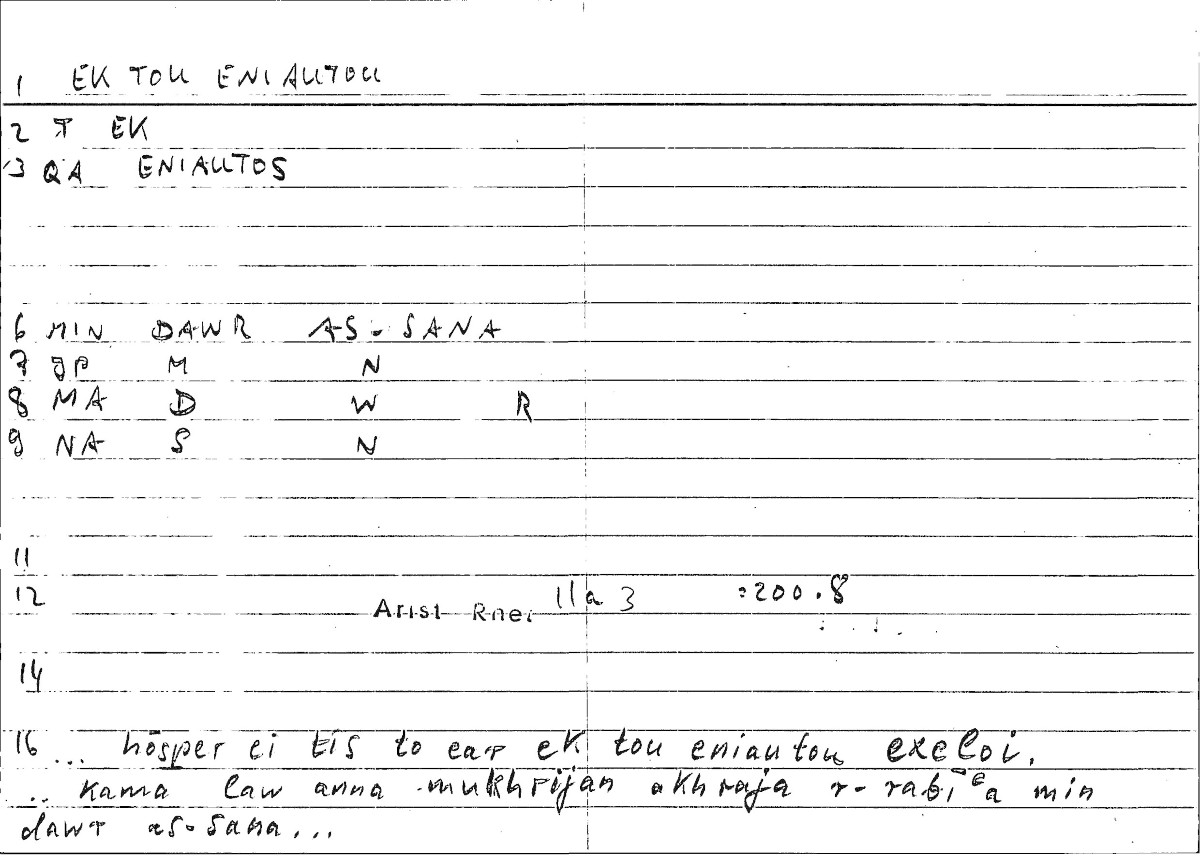 1 EK TOU ENIAUTOU
2 T EK
3 QA ENIAUTOS
6 MIN DAWR AS-SANA
7 JP M N
8 MA D W R
9 NA S N
11
12 Arist Rhet 11a 3 :200.8
14
16 ... hōsper ei tis to ear ek tou eniautou exeloi.
.. kama law anna mukhrijan akhraja r-rabīʿa min
dawr as-sana...